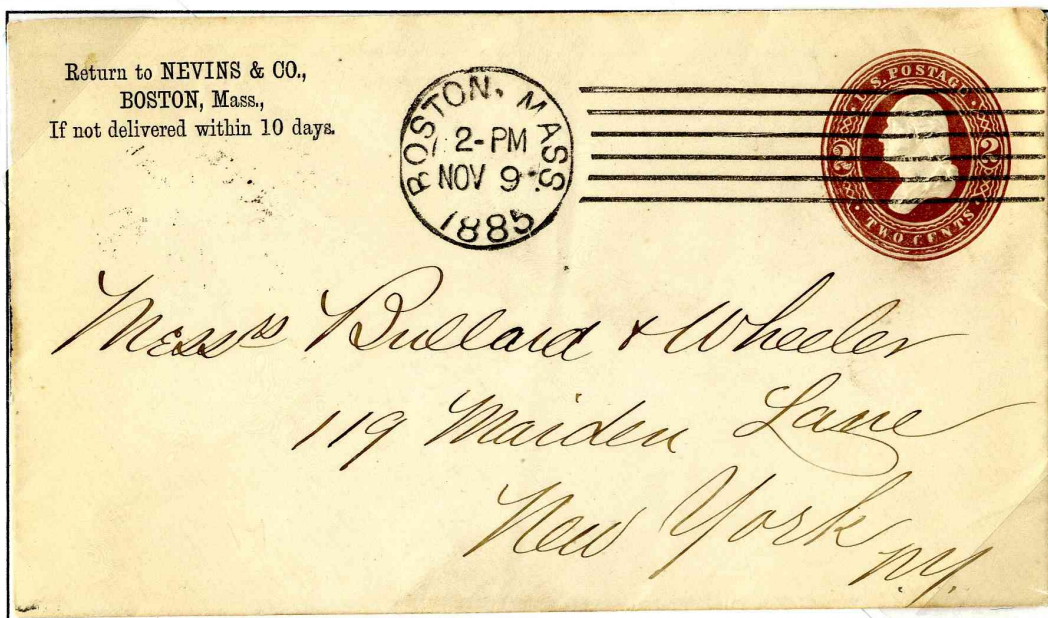 Return to NEVINS & CO.,
BOSTON, Mass.,
If not delivered within 10 days.
BOSTON, MASS.
2-PM
NOV 9
1885
U.S. POSTAGE
2 2
TWO CENTS
Messrs Bullard & Wheeler
119 Maiden Lane
New York
N.Y.